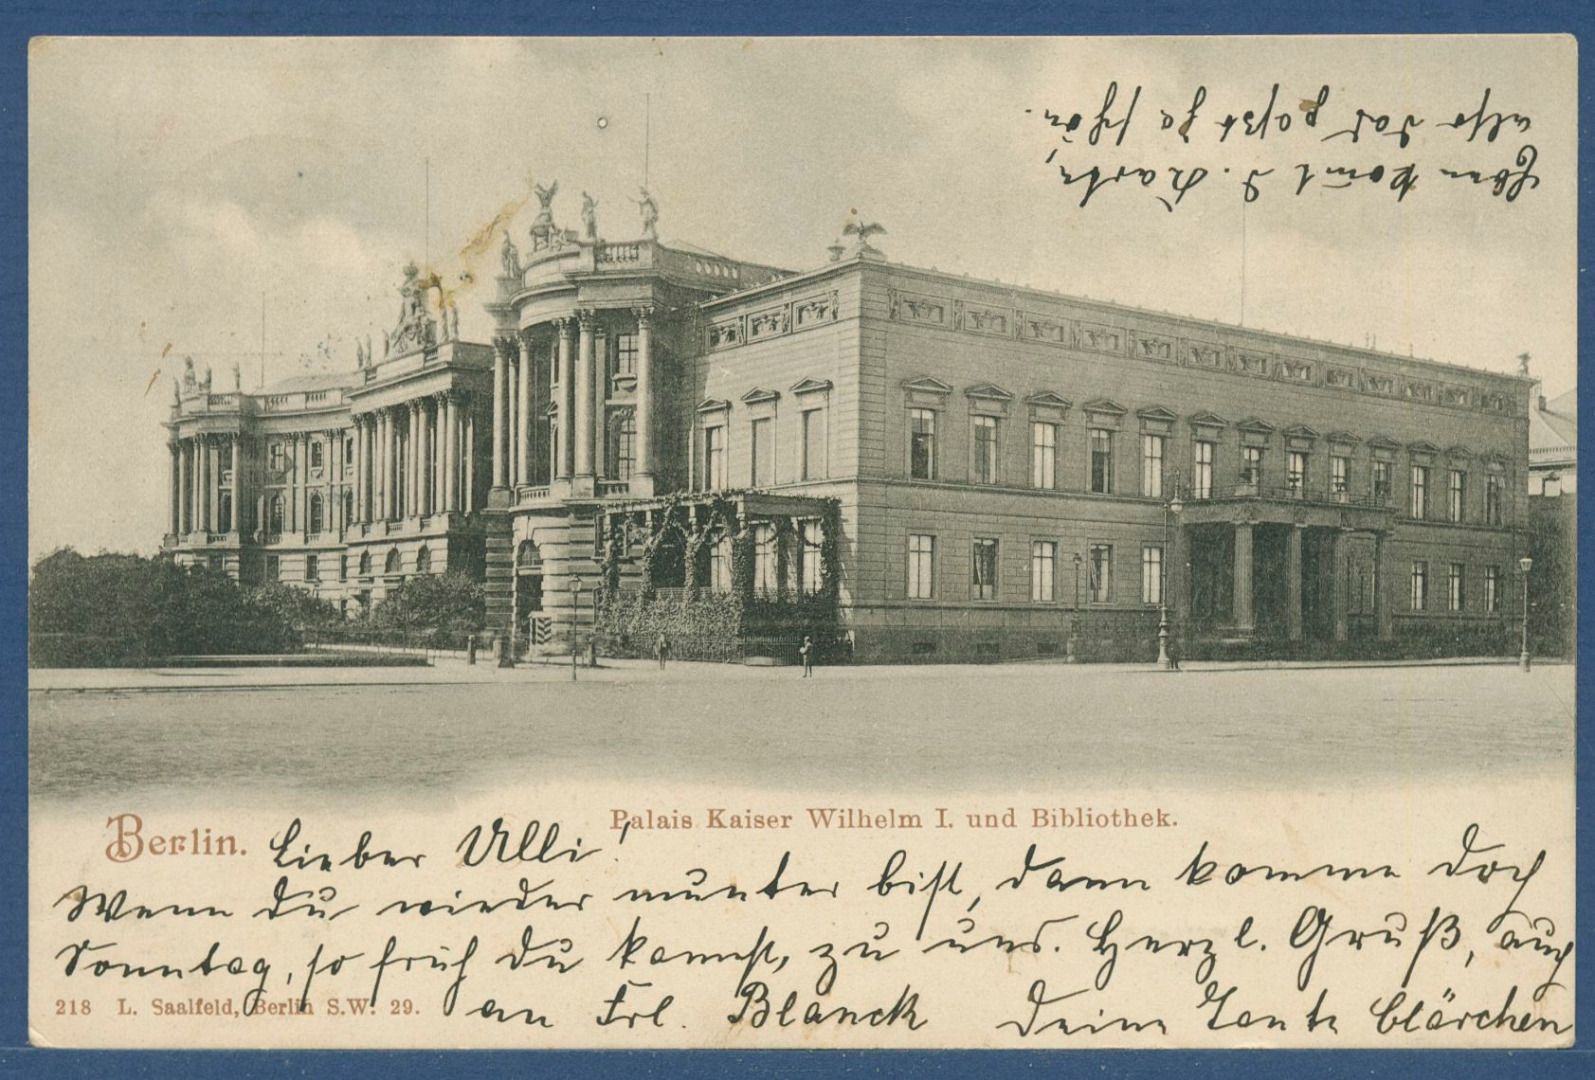 Eben komt d. Karte,
also das paßt ja schön.
Palais Kaiser Wilhelm I. und Bibliothek.
Berlin. Lieber Ulli!
Wenn du wieder munter bist, dann komme doch
Sonntag, so früh du kannst, zu uns. Herzl. Gruß, auch
218 L. Saalfeld, Berlin S.W. 29.
an Frl. Blanck Deine Tante Clärchen